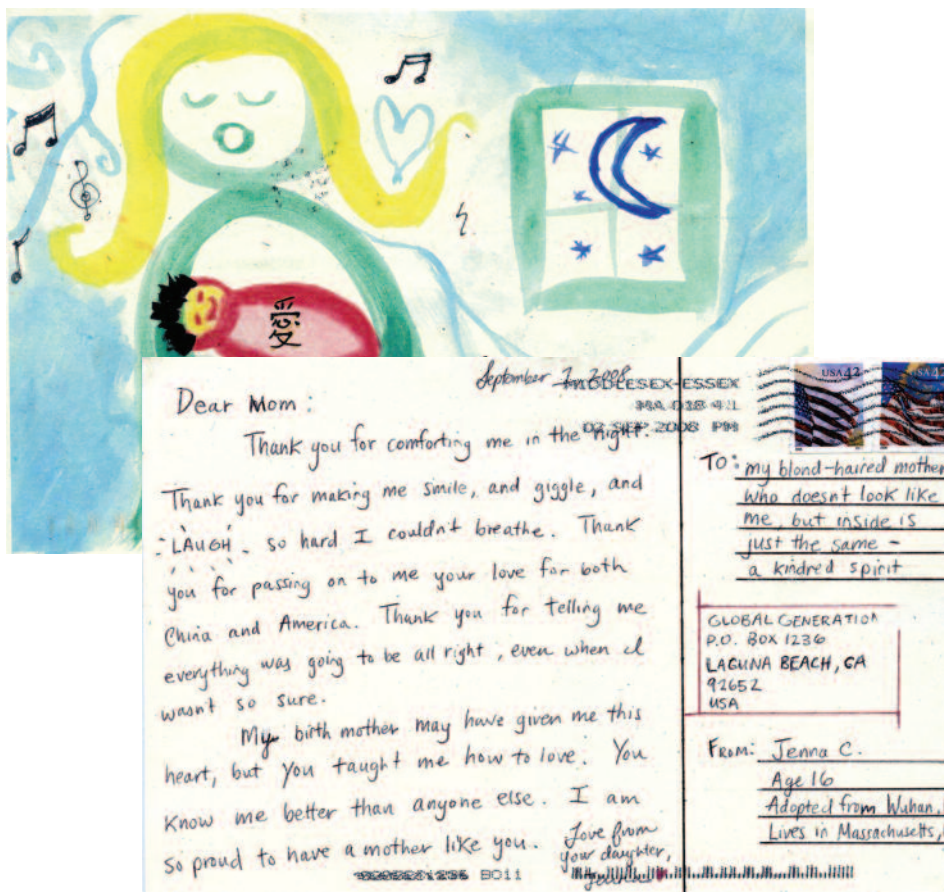 愛
September 2, 2008
MIDDLESEX-ESSEX
MA 018 4 1
02 SEP 2008 PM
USA 42
USA 42
Dear Mom:
Thank you for comforting me in the night.
Thank you for making me smile, and giggle, and
LAUGH so hard I couldn't breathe. Thank
you for passing on to me your love for both
China and America. Thank you for telling me
everything was going to be all right, even when I
wasn't so sure.
My birth mother may have given me this
heart, but you taught me how to love. You
know me better than anyone else. I am
so proud to have a mother like you.
Love from
your daughter,
Jenna
BO11
TO: my blond-haired mother
who doesn't look like
me, but inside is
just the same -
a kindred spirit
GLOBAL GENERATION
P.O. BOX 1236
LAGUNA BEACH, CA
92652
USA
FROM: Jenna C.
Age 16
Adopted from Wuhan,
Lives in Massachusetts,